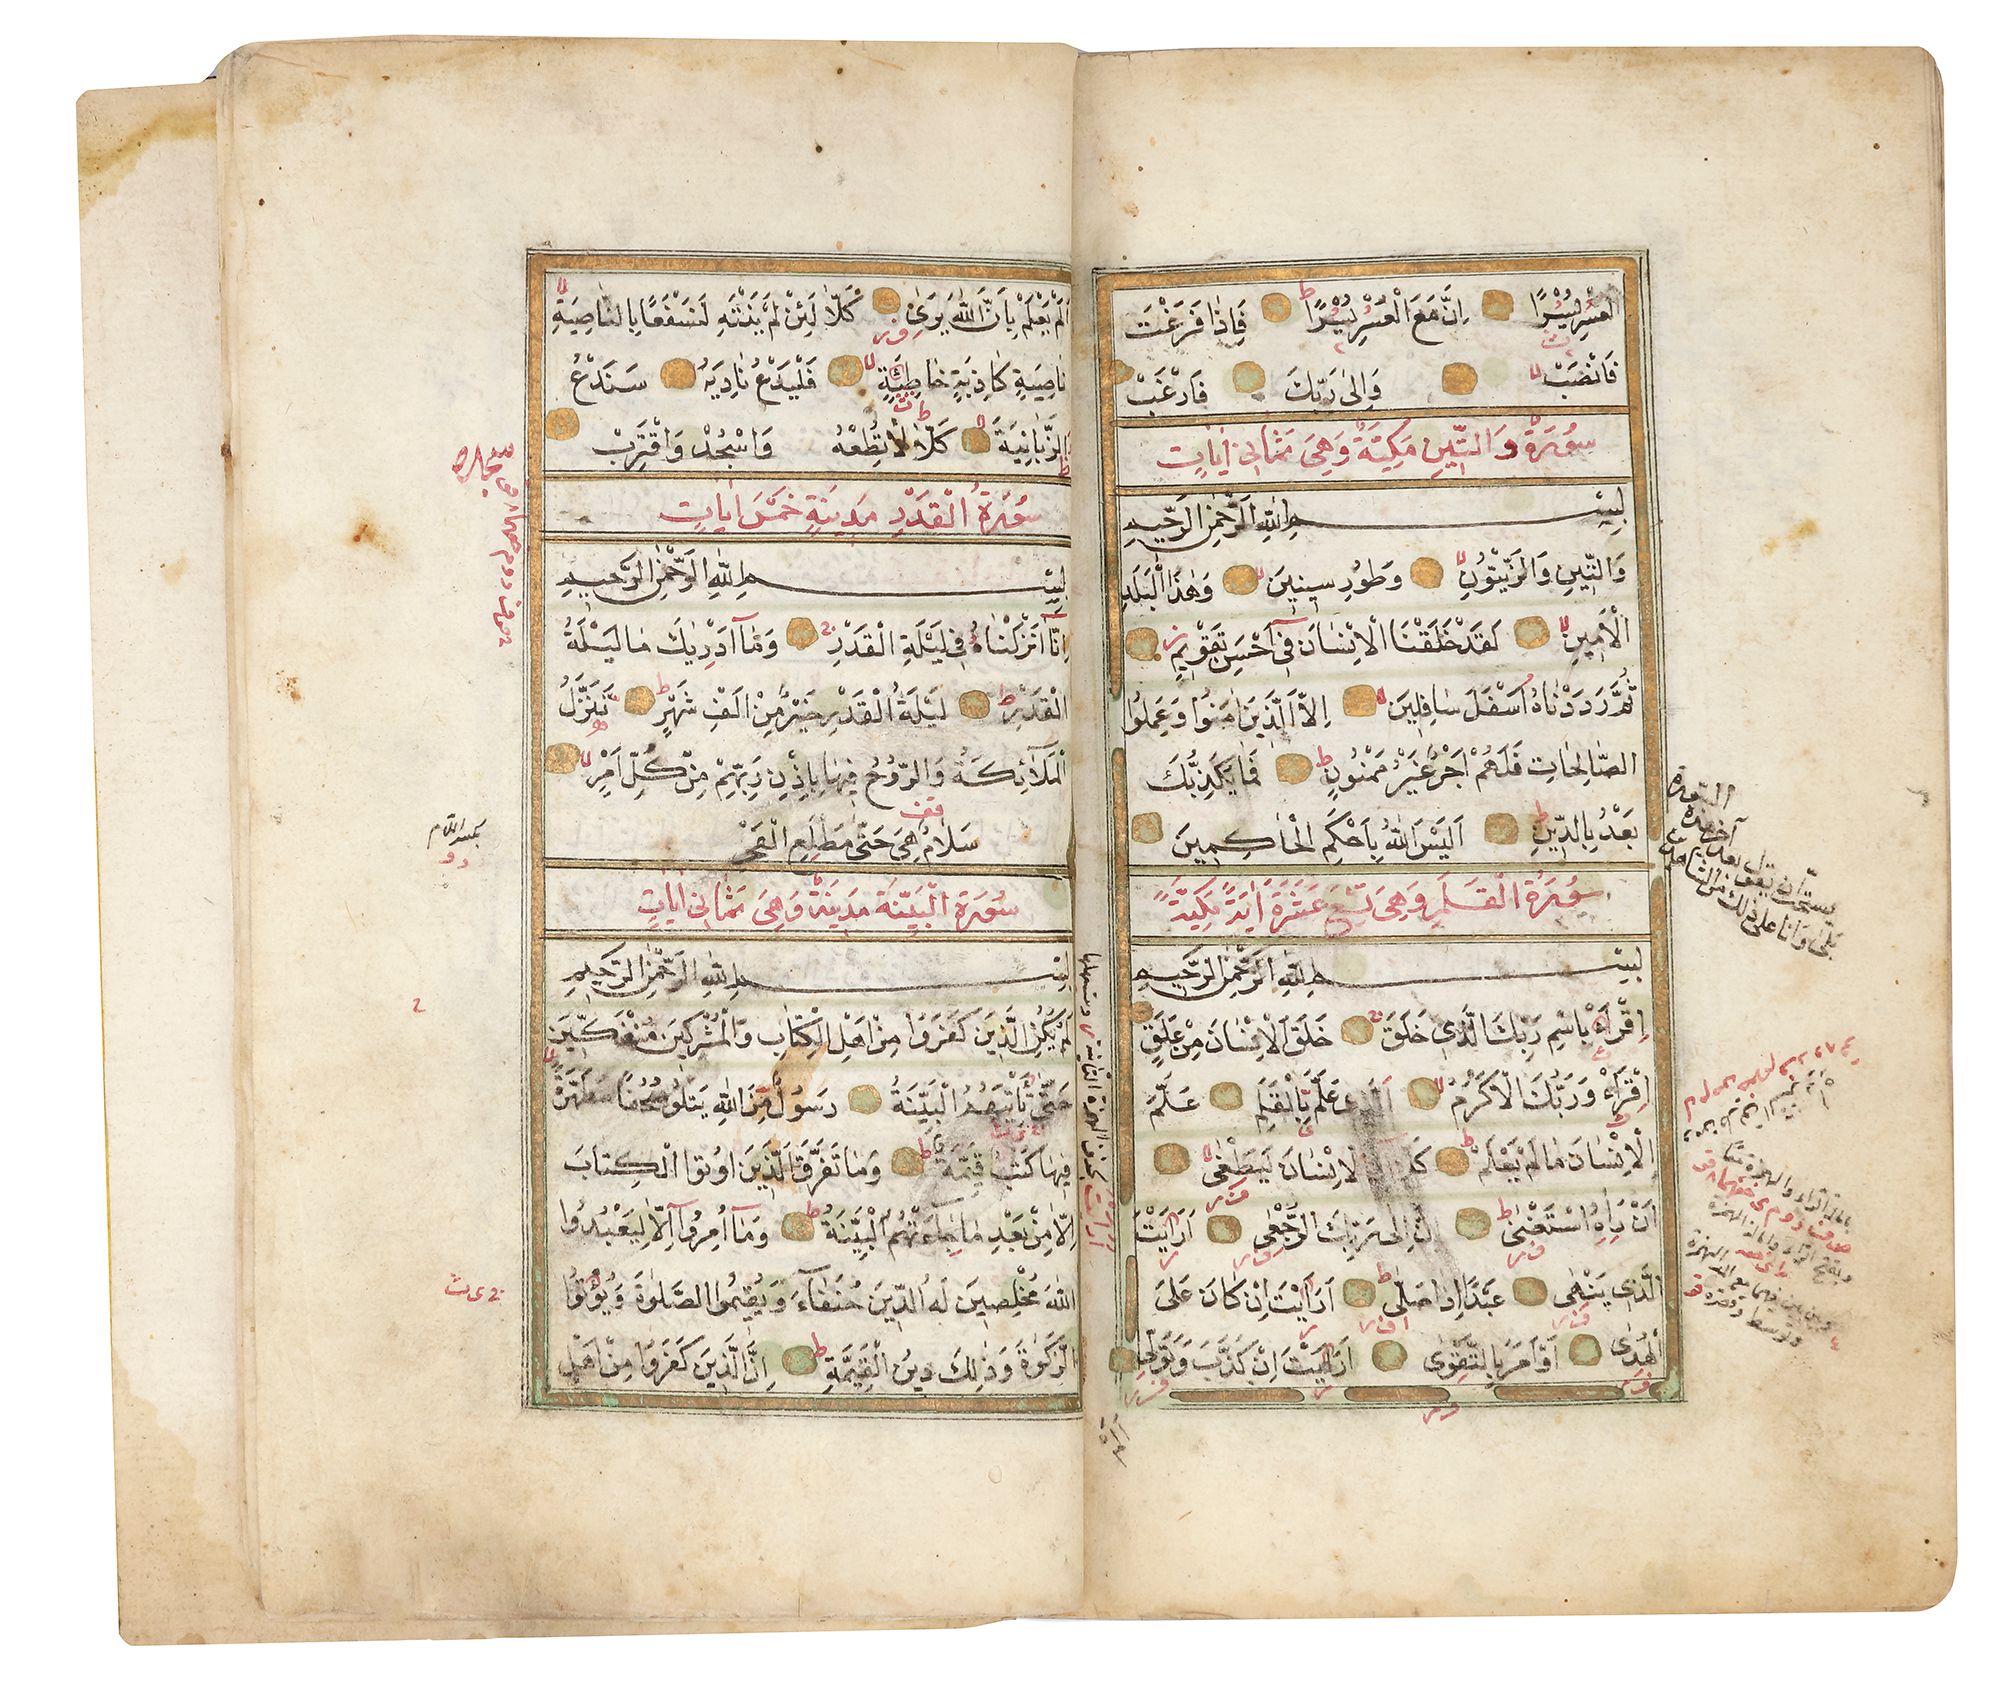 الْعُسْرِ يُسْرًا اِنَّ مَعَ الْعُسْرِ يُسْرًا فَاِذَا فَرَغْتَ
فَانْصَبْ وَاِلٰى رَبِّكَ فَارْغَبْ
سُورَةُ وَالتِّينِ مَكِّيَّةٌ وَهِيَ ثَمَانِي اٰيَاتٍ
بِسْمِ اللهِ الرَّحْمٰنِ الرَّحِيمِ
وَالتِّينِ وَالزَّيْتُونِ وَطُورِ سِينِينَ وَهٰذَا الْبَلَدِ
الْاَمِينِ لَقَدْ خَلَقْنَا الْاِنْسَانَ فِي اَحْسَنِ تَقْوِيمٍ
ثُمَّ رَدَدْنَاهُ اَسْفَلَ سَافِلِينَ اِلَّا الَّذِينَ اٰمَنُوا وَعَمِلُوا
الصَّالِحَاتِ فَلَهُمْ اَجْرٌ غَيْرُ مَمْنُونٍ فَمَا يُكَذِّبُكَ
بَعْدُ بِالدِّينِ اَلَيْسَ اللهُ بِاَحْكَمِ الْحَاكِمِينَ
سُورَةُ الْقَلَمِ وَهِيَ تِسْعَ عَشَرَةَ اٰيَةً مَكِّيَّةً
بِسْمِ اللهِ الرَّحْمٰنِ الرَّحِيمِ
اِقْرَأْ بِاسْمِ رَبِّكَ الَّذِي خَلَقَ خَلَقَ الْاِنْسَانَ مِنْ عَلَقٍ
اِقْرَأْ وَرَبُّكَ الْاَكْرَمُ الَّذِي عَلَّمَ بِالْقَلَمِ عَلَّمَ
الْاِنْسَانَ مَا لَمْ يَعْلَمْ كَلَّا اِنَّ الْاِنْسَانَ لَيَطْغٰى
اَنْ رَاٰهُ اسْتَغْنٰى اِنَّ اِلٰى رَبِّكَ الرُّجْعٰى اَرَاَيْتَ
الَّذِي يَنْهٰى عَبْدًا اِذَا صَلّٰى اَرَاَيْتَ اِنْ كَانَ عَلَى
الْهُدٰى اَوْ اَمَرَ بِالتَّقْوٰى اَرَاَيْتَ اِنْ كَذَّبَ وَتَوَلّٰى
اَلَمْ يَعْلَمْ بِاَنَّ اللهَ يَرٰى كَلَّا لَئِنْ لَمْ يَنْتَهِ لَنَسْفَعًا بِالنَّاصِيَةِ
نَاصِيَةٍ كَاذِبَةٍ خَاطِئَةٍ فَلْيَدْعُ نَادِيَهُ سَنَدْعُ
الزَّبَانِيَةَ كَلَّا لَا تُطِعْهُ وَاسْجُدْ وَاقْتَرِبْ
سُورَةُ الْقَدْرِ مَدَنِيَةٌ خَمْسَ اٰيَاتٍ
بِسْمِ اللهِ الرَّحْمٰنِ الرَّحِيمِ
اِنَّا اَنْزَلْنَاهُ فِي لَيْلَةِ الْقَدْرِ وَمَا اَدْرٰيكَ مَا لَيْلَةُ
الْقَدْرِ لَيْلَةُ الْقَدْرِ خَيْرٌ مِنْ اَلْفِ شَهْرٍ تَنَزَّلُ
الْمَلَائِكَةُ وَالرُّوحُ فِيهَا بِاِذْنِ رَبِّهِمْ مِنْ كُلِّ اَمْرٍ
سَلَامٌ هِيَ حَتّٰى مَطْلَعِ الْفَجْرِ
سُورَةُ الْبَيِّنَةِ مَدَنِيَةٌ وَهِيَ ثَمَانِي اٰيَاتٍ
بِسْمِ اللهِ الرَّحْمٰنِ الرَّحِيمِ
لَمْ يَكُنِ الَّذِينَ كَفَرُوا مِنْ اَهْلِ الْكِتَابِ وَالْمُشْرِكِينَ مُنْفَكِّينَ
حَتّٰى تَأْتِيَهُمُ الْبَيِّنَةُ رَسُولٌ مِنَ اللهِ يَتْلُوا صُحُفًا مُطَهَّرَةً
فِيهَا كُتُبٌ قَيِّمَةٌ وَمَا تَفَرَّقَ الَّذِينَ اُوتُوا الْكِتَابَ
اِلَّا مِنْ بَعْدِ مَا جَاءَتْهُمُ الْبَيِّنَةُ وَمَا اُمِرُوا اِلَّا لِيَعْبُدُوا
اللهَ مُخْلِصِينَ لَهُ الدِّينَ حُنَفَاءَ وَيُقِيمُوا الصَّلٰوةَ وَيُؤْتُوا
الزَّكٰوةَ وَذٰلِكَ دِينُ الْقَيِّمَةِ اِنَّ الَّذِينَ كَفَرُوا مِنْ اَهْلِ